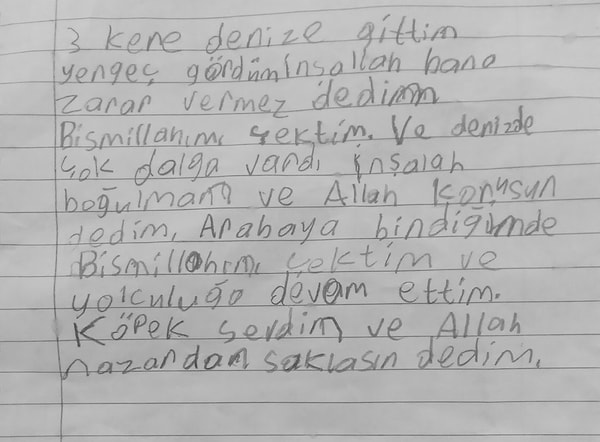 3 kene denize gittim
yengeç gördüm İnşallah bana
zarar vermez dedimm
Bismillahımı çektim. Ve denizde
çok dalga vardı inşalah
boğulmam ve Allah Korusun
dedim, Arabaya bindiğimde
Bismillahımı çektim ve
yolculuğa devam ettim.
Köpek serdim ve Allah
nazardan saklasın dedim.